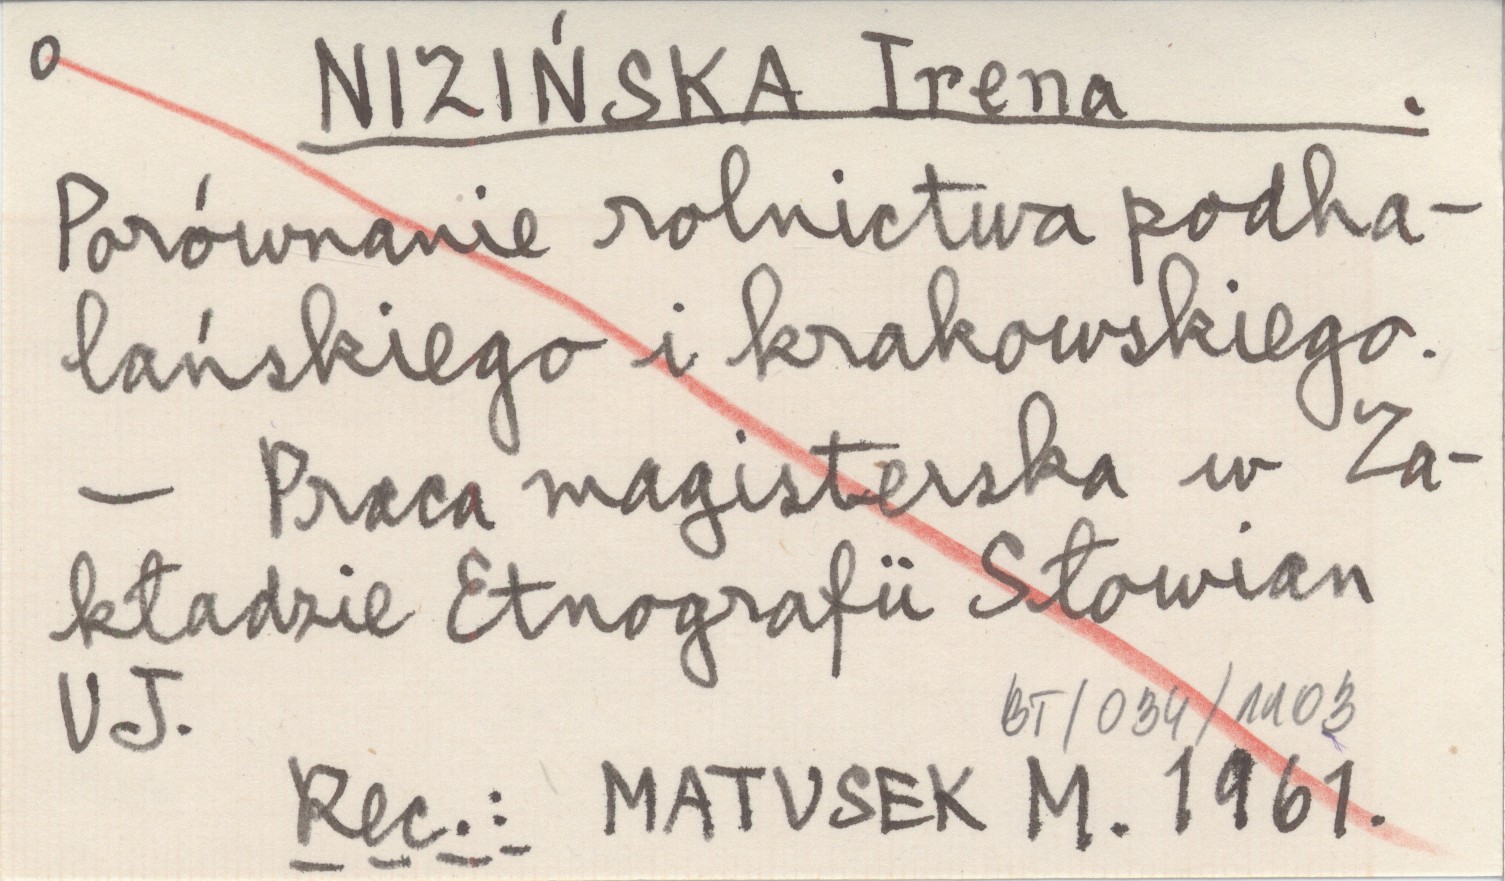 o NIZIŃSKA Irena .
Porównanie rolnictwa podha-
lańskiego i krakowskiego.
— Praca magisterska w Za-
kładzie Etnografii Słowian
UJ.
BT/034/1103
Rec.: MATUSEK M. 1961.